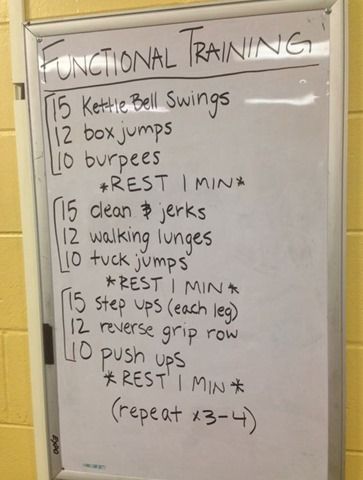 FUNCTIONAL TRAINING
15 Kettle Bell Swings
12 box jumps
10 burpees
*REST 1 MIN*
15 clean & jerks
12 walking lunges
10 tuck jumps
*REST 1 MIN*
15 step ups (each leg)
12 reverse grip row
10 push ups
*REST 1 MIN*
(repeat x3-4)